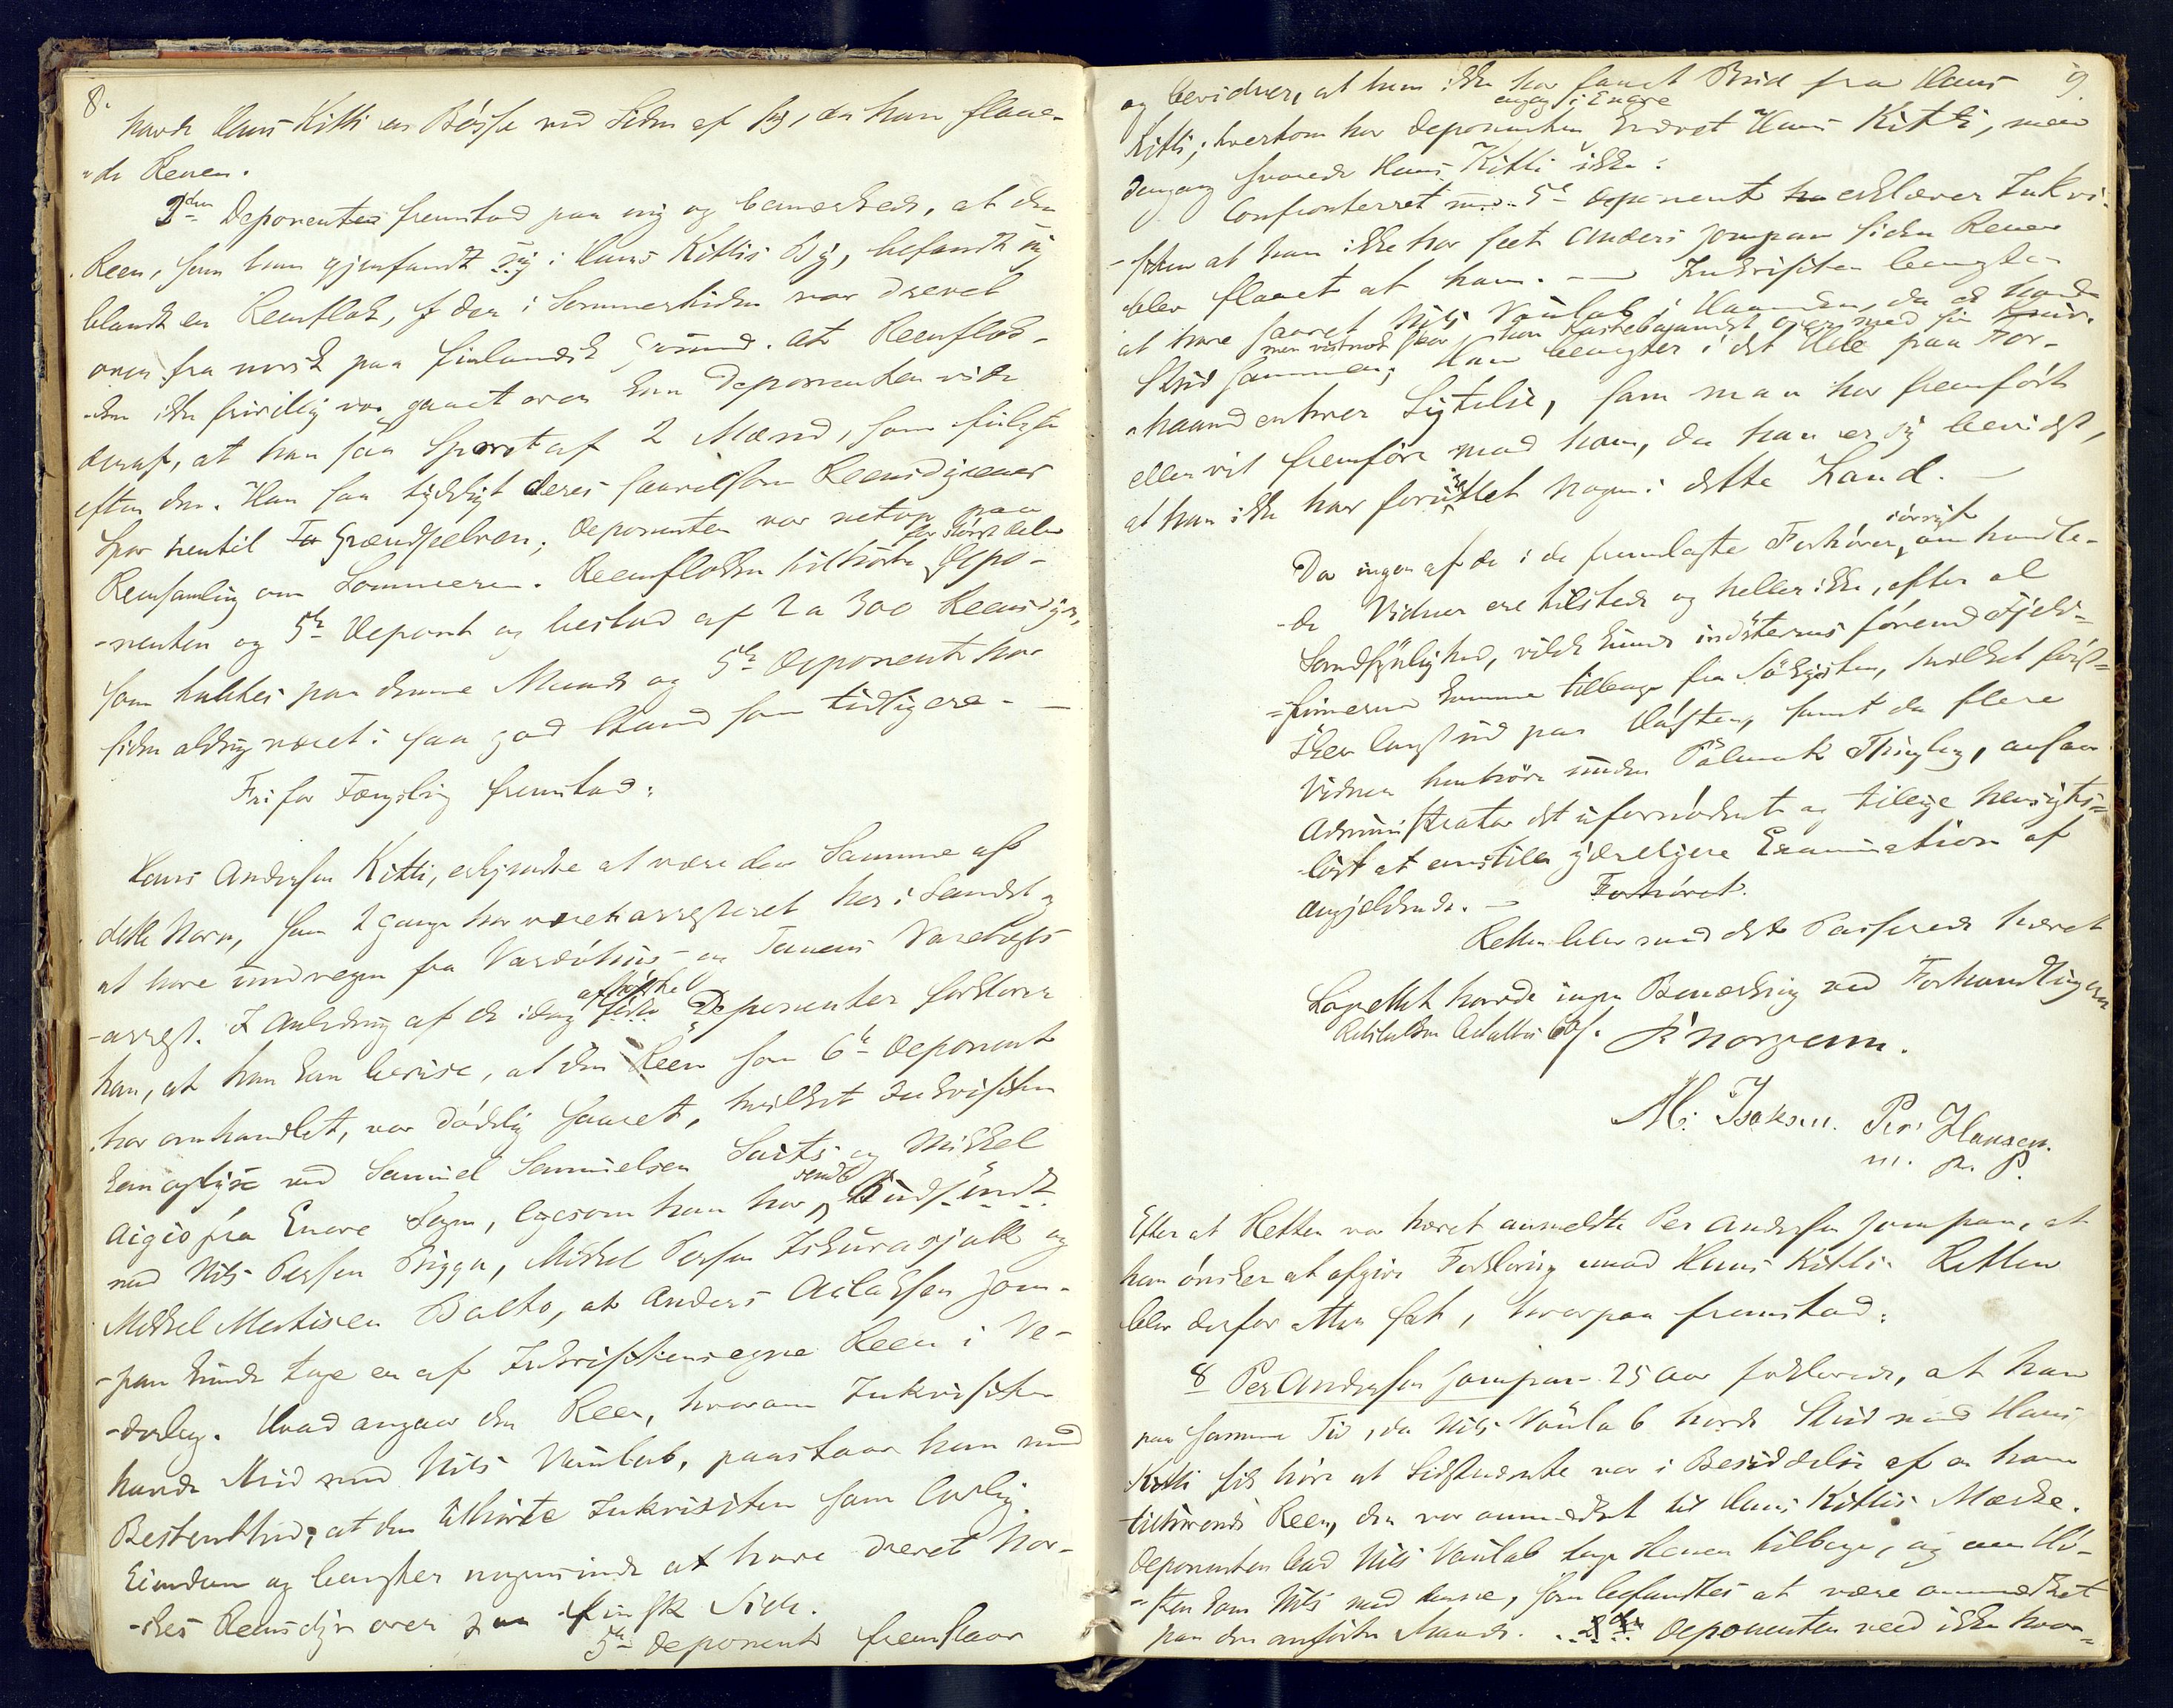 8.
havde Hans Kitti en Bösse ved Siden af sig, da han flaae-
-de Renen.
2den Deponenten fremstod paa ny og bemærkede, at den
Reen, som han gjenfandt sig i Hans Kittis By, befandt sig
blandt en Reenflok, der i Sommertiden var drevet
over fra norsk paa finlandsk Grund. At Reenflok-
-ken ikke frivillig var gaaet over kan Deponenten vide
deraf, at han saa Sporet af 2 Mænd, som fulgte
efter den. Han saa tydeligt deres saavelsom Reensdyrenes
Spor hentil Grændseelven; Deponenten var netop paa
Reensamling om Sommeren. Reenflokken tilhörte for störste Delen Depo-
-nenten og 5te Deponent og bestod af 2 a 300 Reensdyr,
som savnes paa denne Maade og 5te Deponent har
siden aldrig været i saa god Stand som tidligere. —
Fri for Fængsling fremstod:
Hans Andersen Kitti, erkjendte at være den Samme af
dette Navn, som 2 gange har været arresteret her i Landet og
at have undveget fra Vardöhus- og Tanens Varetægts-
-arrest. I Anledning af de idag afhörte Deponenter forklarer
han, at han kan bevise, at den Reen som 6te Deponent
har omhandlet, var dödelig saaret, hvilket Inkvisiten
kan oplyse ved Samuel Samuelsen Saits og Mikkel
Aigio fra Enare Sogn, ligesom han har sendt Bud
med Nils Persen Pigga, Mikkel Persen og
Mikkel Mathisen Balto, at Anders Aslaksen Jom-
-pan kunde tage en af Inkvisitens egne Reen i Ve-
-derlag. Hvad angaar den Reen, hvorom Inkvisiten
havde Strid med Nils Vaulab, paastaar han med
Bestemthed, at den tilhörte Inkvisiten som lovlig
Eiendom og benægter nogensinde at have drevet Nor-
-skes Reensdyr over paa finsk Side.
5te Deponent fremstaar
9.
og bevidner, at hun ikke har faaet Bud fra Hans
Kitti; hvertom har Deponenten engang i Enare krævet Hans Kitti, men
dengang svarede Hans Kitti ikke.
Confronteret med 5te Deponent erklærer Inkvi-
-siten at han ikke har seet Anders Jompan siden Renen
blev flaaet af ham. — Inkvisiten benægter
at have saaret Nils Vaulab i Haanden, da de havde
Strid sammen; Han benægter i det Hele paa For-
-haand enhver Sigtelse, som man har fremfört
eller vil fremföre mod ham, da han er sig bevidst,
at han ikke har forurettet Nogen i dette Land. —
Da ingen af de i de fremlagte Forhörer iövrigt omhandle-
-de Vidner ere tilstede og heller ikke, efter al
Sandsynlighed, vilde kunde indstevnes förend Fjeld-
-finnerne komme tilbage fra Sökysten, hvilket först
skeer langt ud paa Hösten, samt da flere
Vidner henhöre under Polmak Thinglag, ansaa
Administrator det ufornödent og tillige hensigts-
-löst at anstille yderligere Examination af
Angjeldende. — Forhöret.
Retten blev med det Passerede hævet
Laugrettet havde ingen Bemærkning ved Forhandlingerne
P Norvenn.
M. Isaksen. Per Hansen.
m. p. P.
Efter at Retten var hævet anmeldte Per Andersen Jompan, at
han önsker at afgive Forklaring imod Hans Kitti. Retten
blev derfor atter sat, hvorpaa fremstod:
8 Per Andersen Jompan 25 Aar forklarede, at han
paa samme Tid, da Nils Vaulab havde Strid med Hans
Kitti fik höre at Sidstnævnte var i Besiddelse af en ham
tilhörende Reen, der var ommærket til Hans Kittis Mærke.
Deponenten bad Nils Vaulab tage Renen tilbage, og om Hö-
-sten kom Nils med denne, som befandtes at være ommærket
paa den anförte Maade. Deponenten veed ikke hvor-